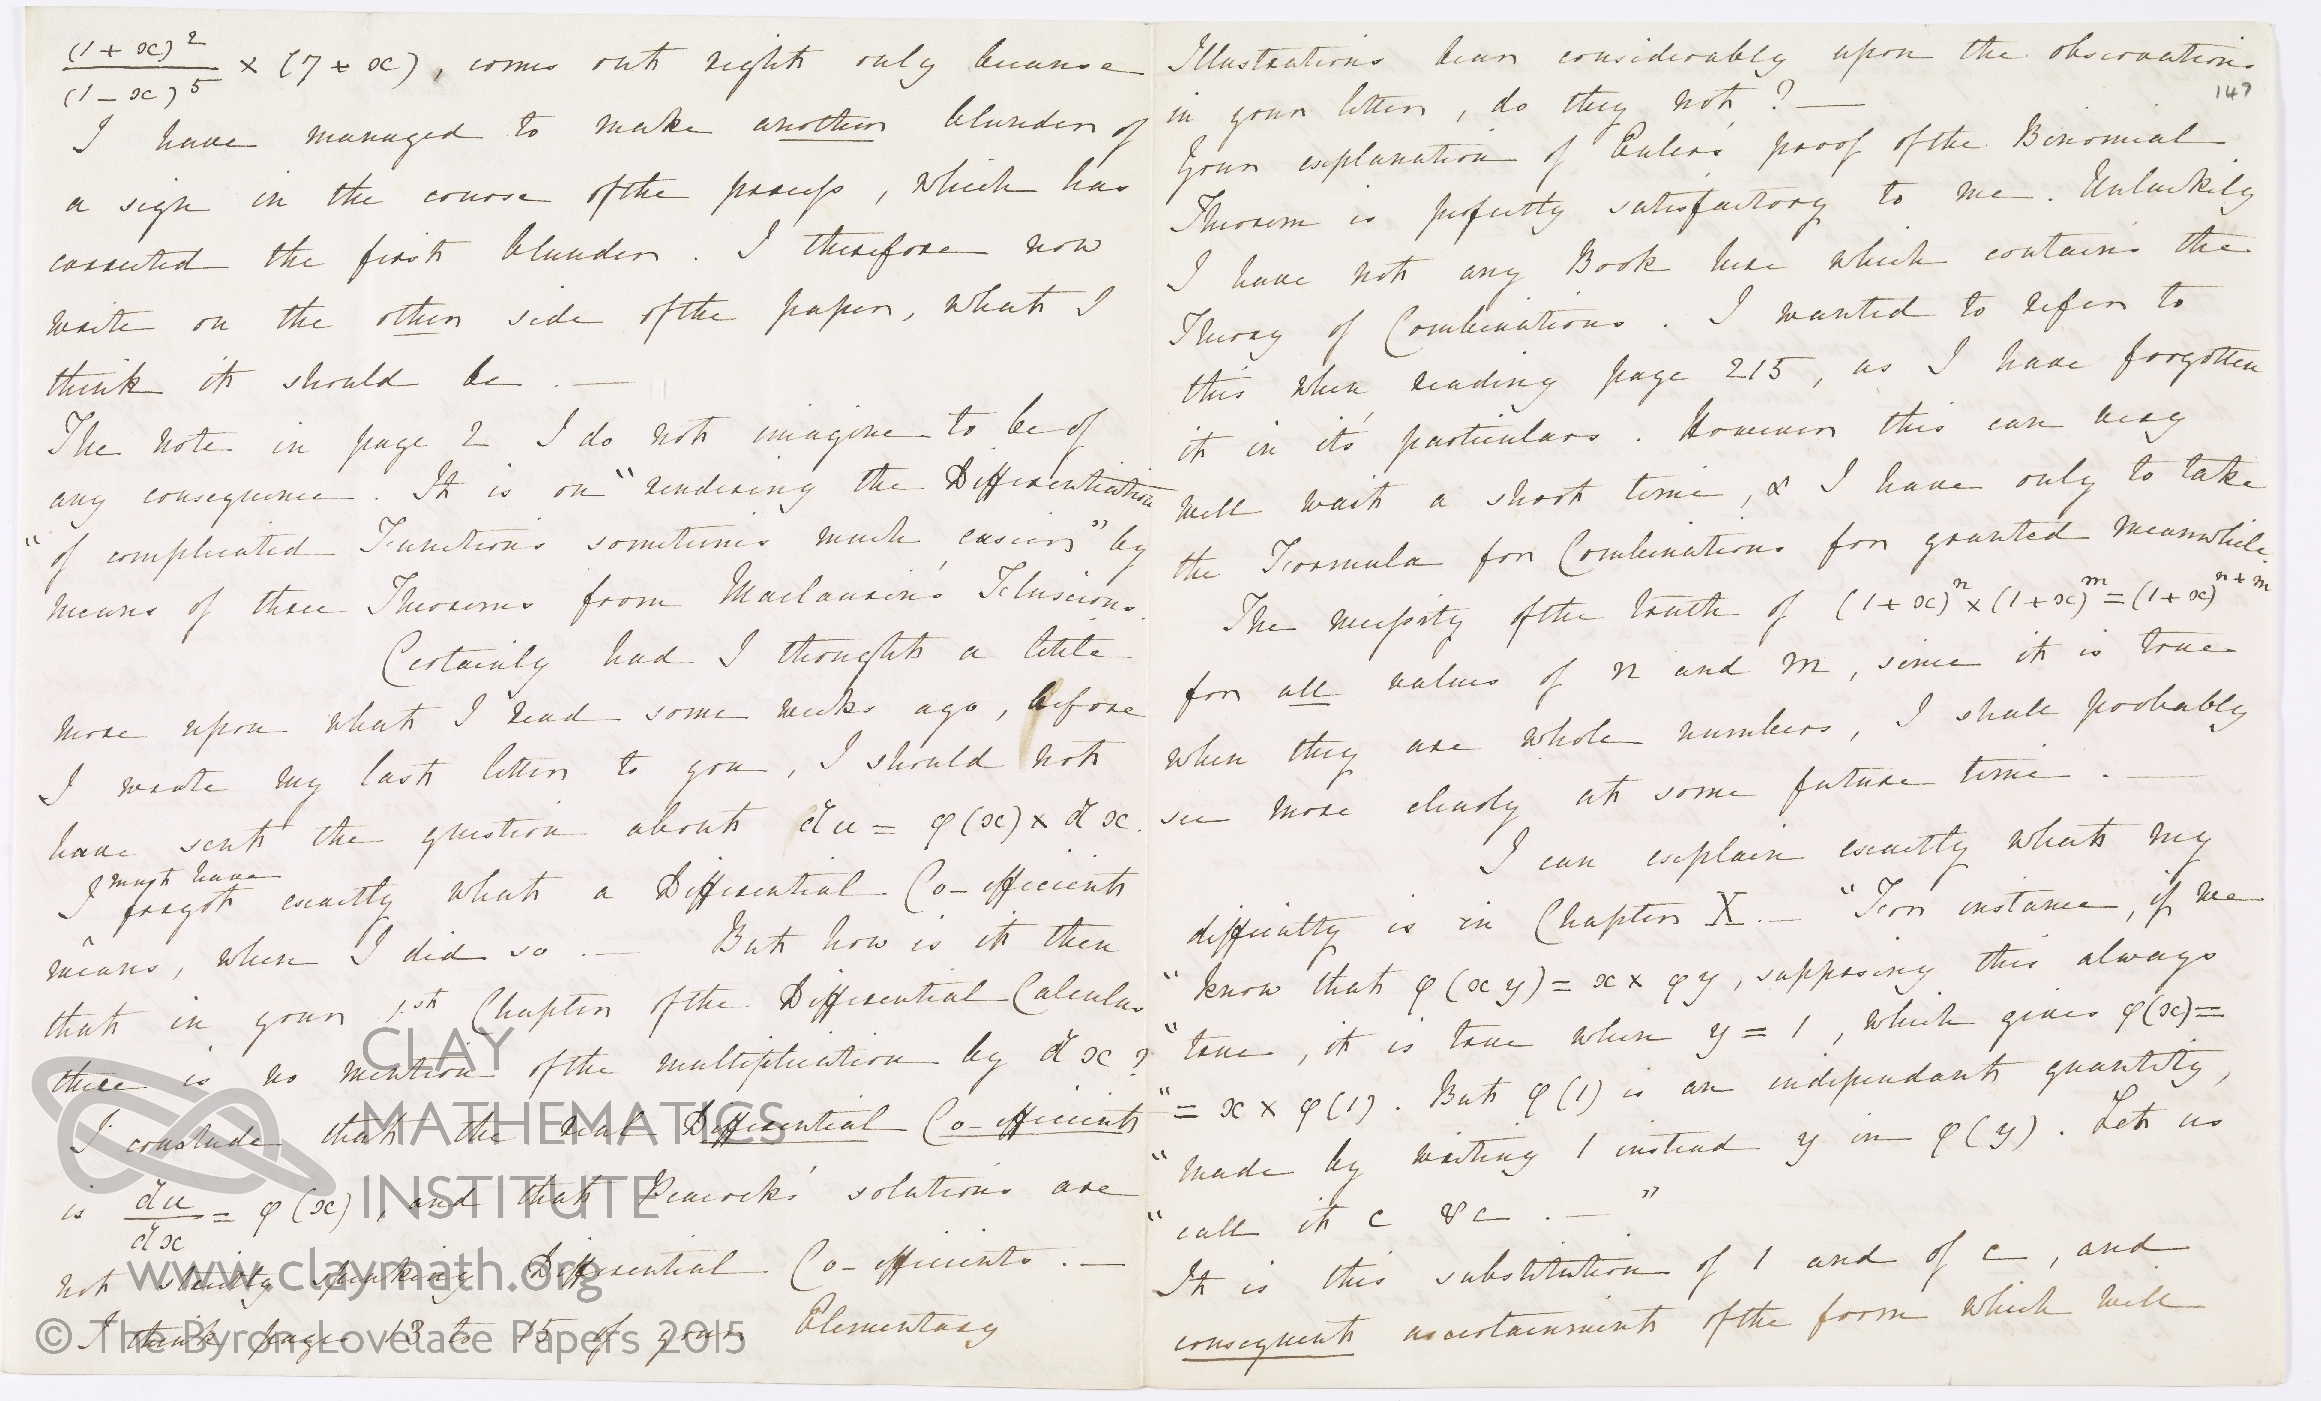 (1+x)² / (1−x)⁵ × (7+x), comes out right only because
I have managed to make another blunder of
a sign in the course of the process, which has
corrected the first blunder. I therefore now
write on the other side of the paper, what I
think it should be. —
The note in page 2 I do not imagine to be of
any consequence. It is on "rendering the Differentiation
"of complicated Functions sometimes much easier" by
means of three Theorems from Maclaurin's Fluxions.
Certainly had I thought a little
more upon what I read some weeks ago, before
I wrote my last letter to you, I should not
have sent the question about du = φ(x) × dx.
I must have forgot exactly what a Differential Co-efficient
means, when I did so. — But how is it then
that in your 1st Chapter of the Differential Calculus
there is no mention of the multiplication by dx?
I conclude that the real Differential Co-efficient
is du/dx = φ(x), and that Peacock's solutions are
not strictly speaking Differential Co-efficients. —
I think pages 13 to 15 of your Elementary
Illustrations bear considerably upon the observations
147
in your letter, do they not? —
Your explanation of Euler's proof of the Binomial
Theorem is perfectly satisfactory to me. Unluckily
I have not any Book here which contains the
Theory of Combinations. I wanted to refer to
this when reading page 215, as I have forgotten
it in it's particulars. However this can very
well wait a short time, & I have only to take
the Formula for Combinations for granted meanwhile
The necessity of the truth of (1+x)ⁿ × (1+x)ᵐ = (1+x)ⁿ⁺ᵐ
for all values of n and m, since it is true
when they are whole numbers, I shall probably
see more clearly at some future time. —
I can explain exactly what my
difficulty is in Chapter X. — "For instance, if we
"know that φ(xy) = x × φy, supposing this always
"true, it is true when y = 1, which gives φ(x) =
"= x × φ(1). But φ(1) is an independant quantity,
"made by writing 1 instead y in φ(y). Let us
"call it c &c. — "
It is this substitution of 1 and of c, and
consequent ascertainment of the form which will
CLAY
MATHEMATICS
INSTITUTE
www.claymath.org
© The Byron-Lovelace Papers 2015